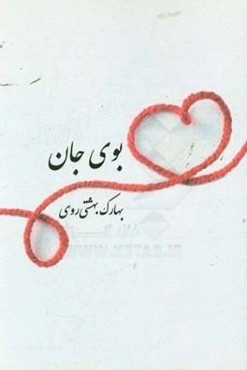 بوی جان
بهارک بهشتی روی
WWW.KETAB.IR